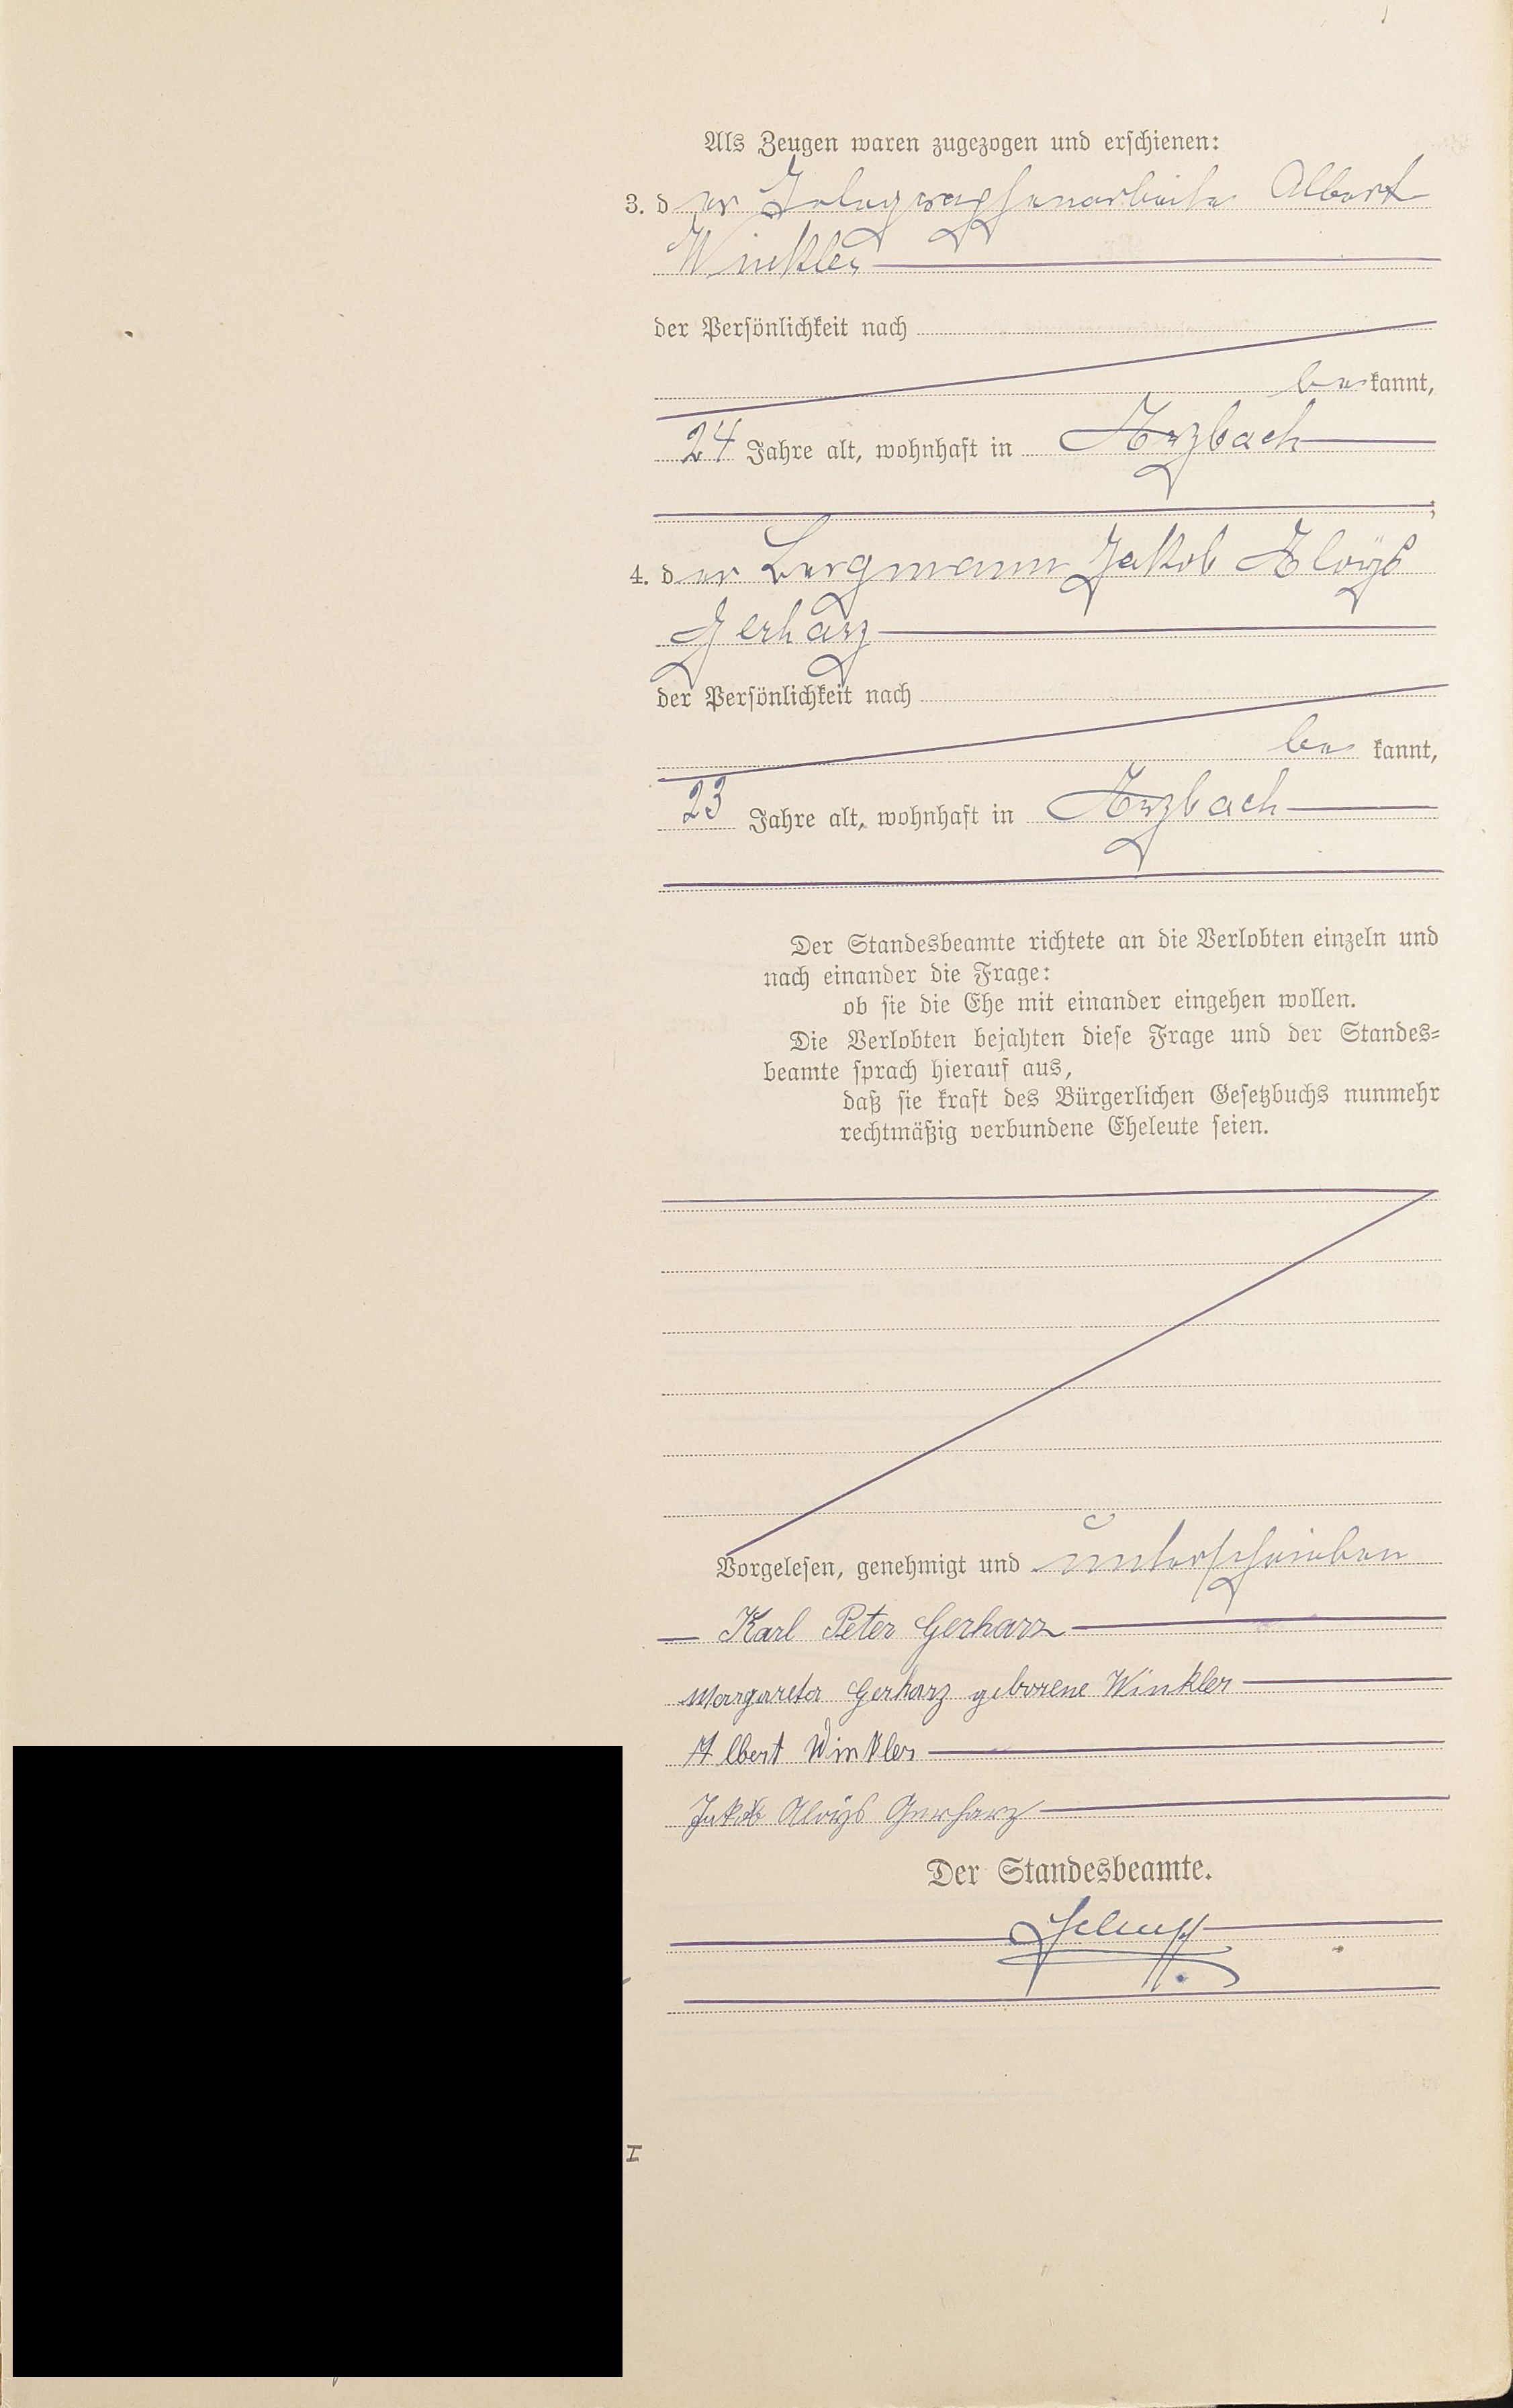 Als Zeugen waren zugezogen und erschienen:
3. der Telegraphenarbeiter Albert
Winkler
der Persönlichkeit nach
be kannt,
24 Jahre alt, wohnhaft in Arzbach
;
4. der Bergmann Jakob Aloÿs
Gerharz
der Persönlichkeit nach
be kannt,
23 Jahre alt, wohnhaft in Arzbach
Der Standesbeamte richtete an die Verlobten einzeln und
nach einander die Frage:
ob sie die Ehe mit einander eingehen wollen.
Die Verlobten bejahten diese Frage und der Standes=
beamte sprach hierauf aus,
daß sie kraft des Bürgerlichen Gesetzbuchs nunmehr
rechtmäßig verbundene Eheleute seien.
Vorgelesen, genehmigt und unterschrieben
Karl Peter Gerharz
Margareta Gerharz geborene Winkler
Albert Winkler
Jakob Aloÿs Gerharz
Der Standesbeamte.
I